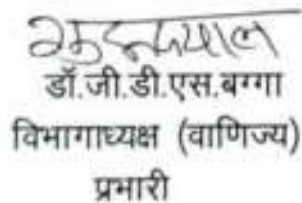 डॉ.जी.डी.एस.बग्गा
विभागाध्यक्ष (वाणिज्य)
प्रभारी